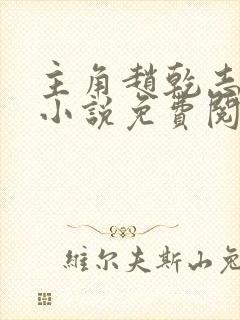 主角趙乾志
小說免費閱
維尔夫斯山兔